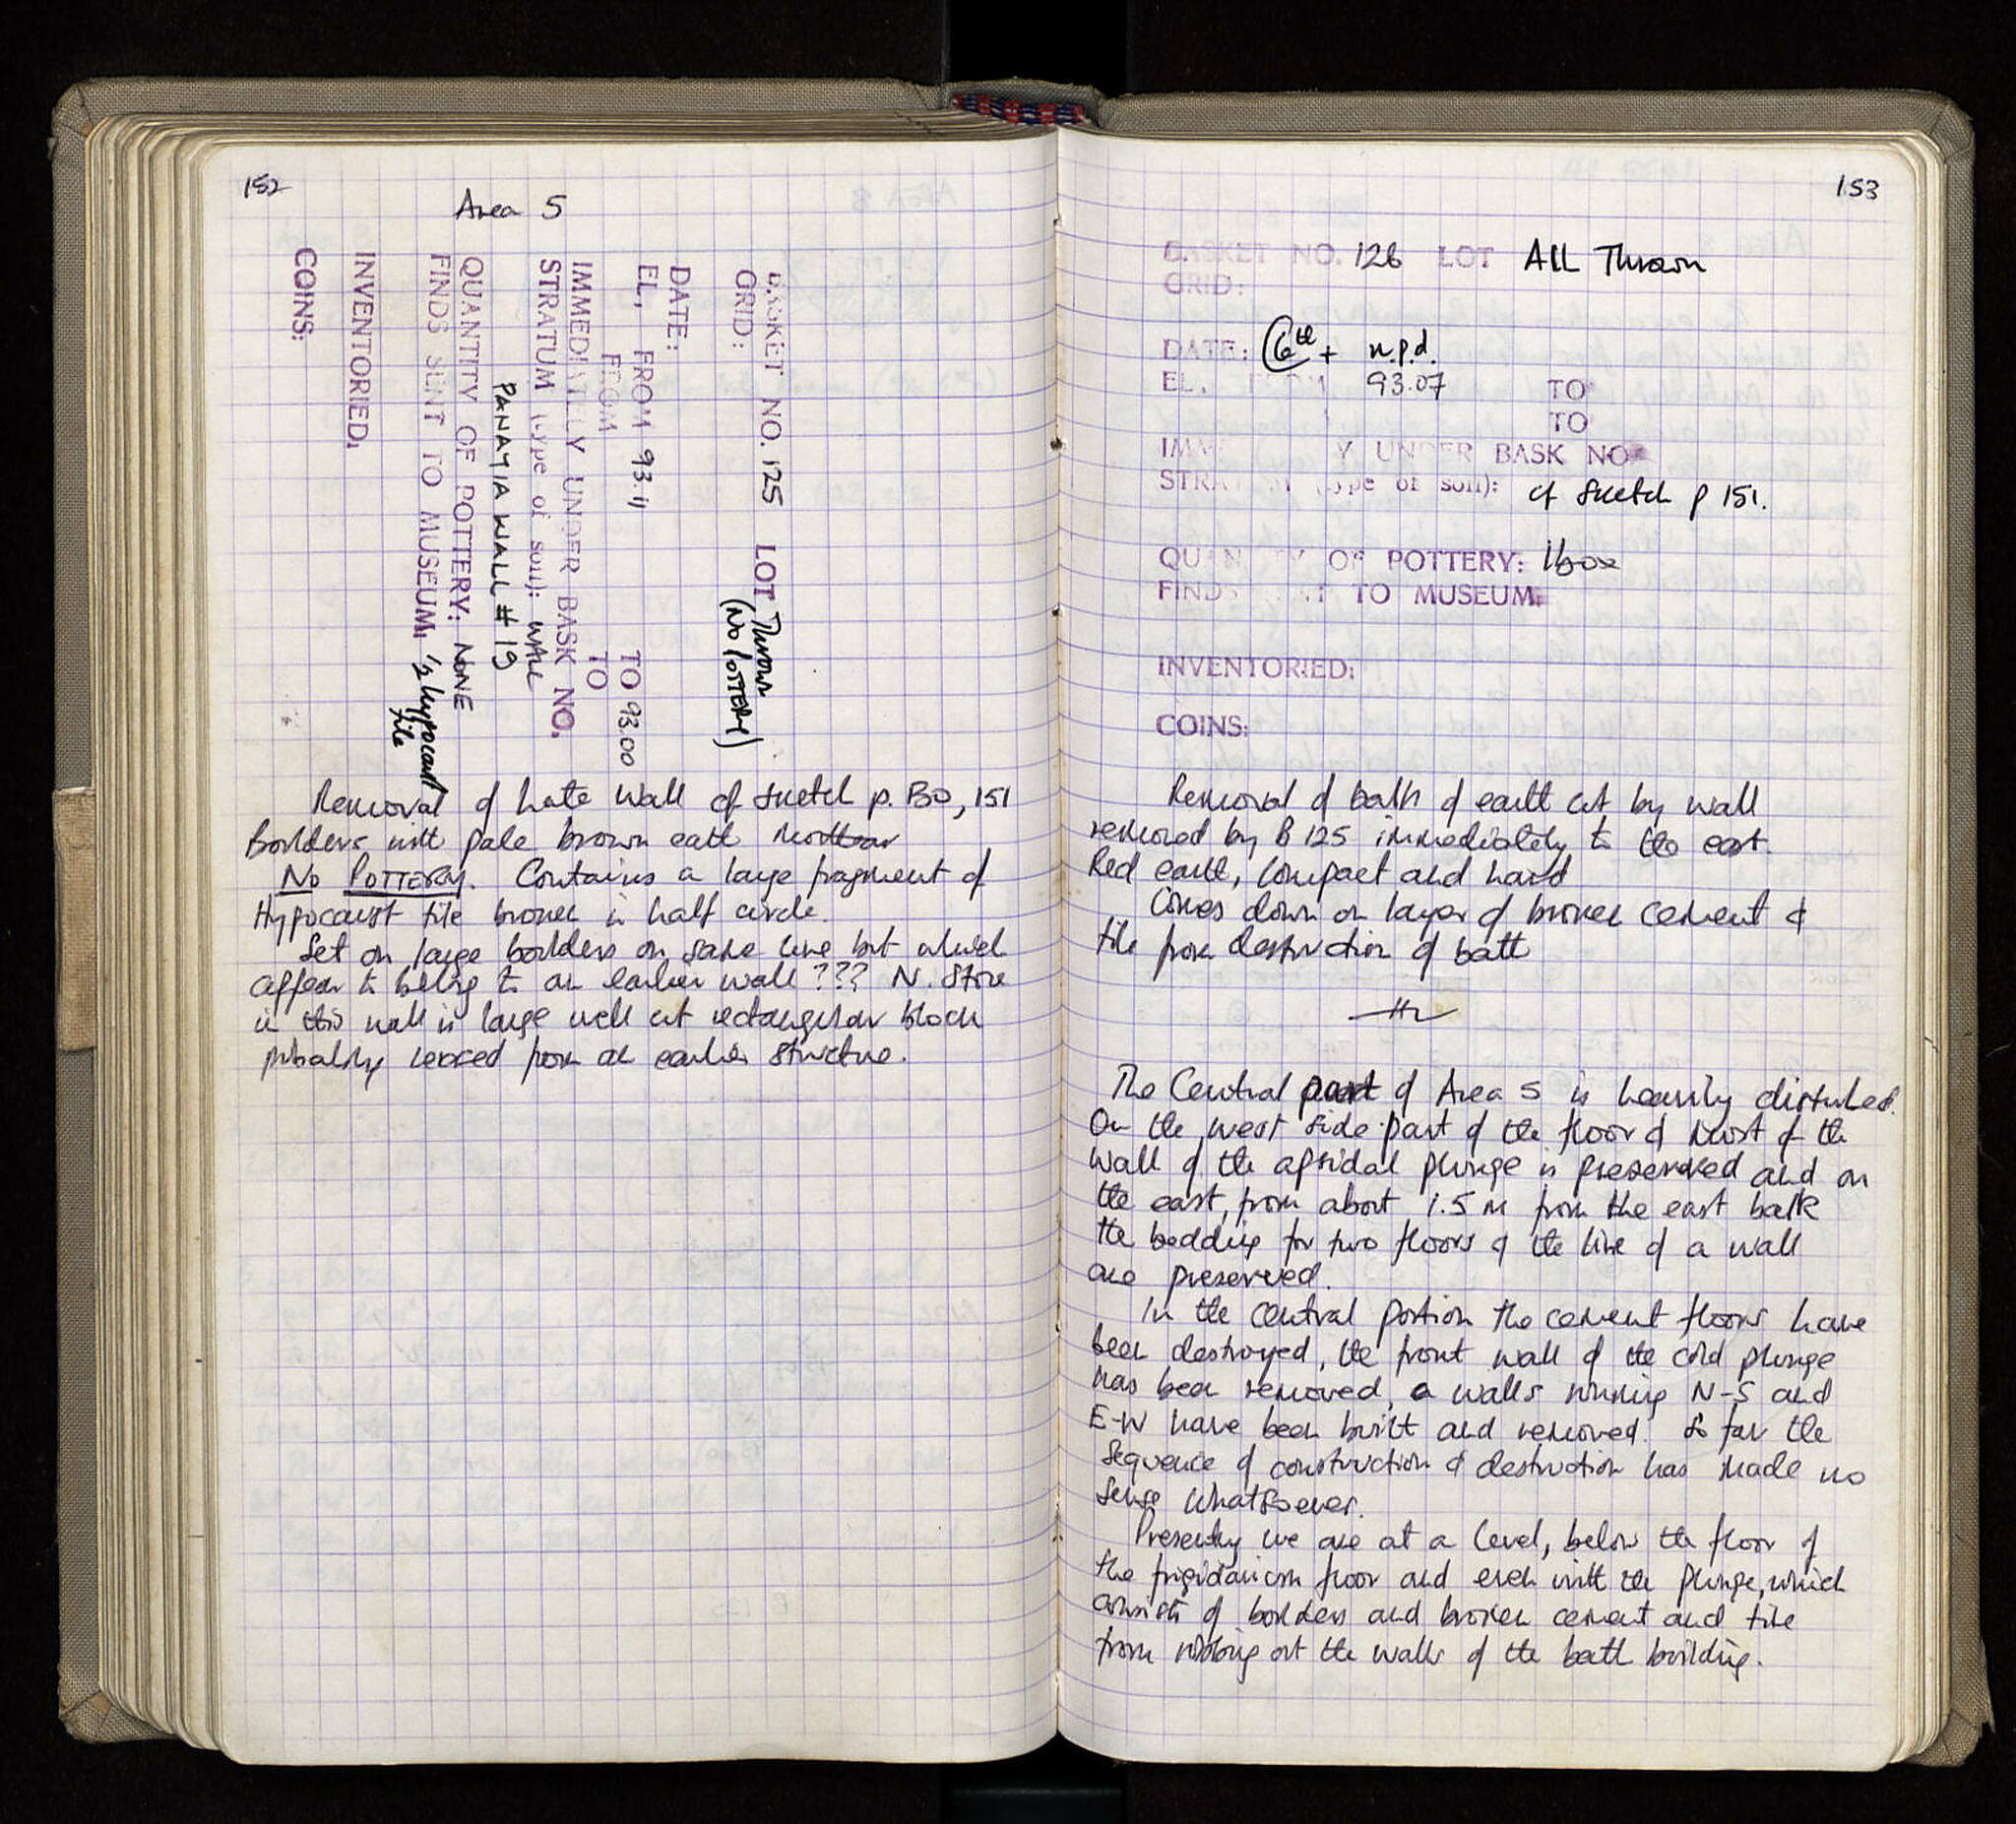 152
Area 5
BASKET NO. 125 LOT Thrown
GRID: (No POTTERY)
DATE:
EL, FROM 93.11 TO 93.00
FROM TO
IMMEDIATELY UNDER BASK NO.
STRATUM (type of soil): WALL
PANAYIA WALL # 19
QUANTITY OF POTTERY: NONE
FINDS SENT TO MUSEUM: 1/2 hypocaust
tile
INVENTORIED:
COINS:
Removal of late wall cf sketch p. 150, 151
Boulders with pale brown earth mortar
No POTTERY. Contains a large fragment of
Hypocaust tile broken in half circle.
Set on large boulders on same line but which
appear to belong to an earlier wall??? N. Stone
in this wall is large well cut rectangular block
probably reused from an earlier structure.
153
BASKET NO. 126 LOT All Thrown
GRID:
DATE: 6th + n.p.d.
EL, FROM 93.07 TO
TO
IMM Y UNDER BASK NO
STRATUM (type of soil): cf sketch p 151.
QUANTITY OF POTTERY: 1 box
FINDS SENT TO MUSEUM:
INVENTORIED:
COINS:
Removal of balk of earth cut by wall
removed by B 125 immediately to the east.
Red earth, compact and hard
Comes down on layer of broken cement &
tile from destruction of bath
The Central part of Area 5 is heavily disturbed.
On the west side part of the floor & most of the
wall of the apsidal plunge is preserved and on
the east, from about 1.5 m from the east balk
the bedding for two floors & the line of a wall
are preserved.
In the central portion the cement floors have
been destroyed, the front wall of the cold plunge
has been removed, a walls running N-S and
E-W have been built and removed. So far the
sequence of construction & destruction has made no
sense whatsoever.
Presently we are at a level, below the floor of
the frigidarium floor and even with the plunge, which
consists of boulders and broken cement and tile
from robbing out the walls of the bath building.